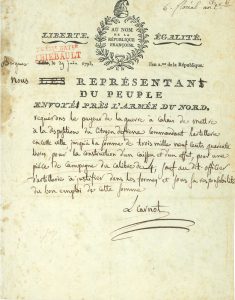 6. floréal an 2e
LIBERTÉ, ÉGALITÉ,
AU NOM
DE LA
RÉPUBLIQUE
FRANÇOISE.
THIEBAULT
juin 1793, l'an 2.me de la République.
Nous REPRÉSENTANT
DU PEUPLE
ENVOYÉ PRÈS L'ARMÉE DU NORD,
requerons le payeur de la guerre à calais de mettre
à la disposition du Citoyen commandant l'artillerie
en cette ville jusqu'à la somme de trois mille neuf cents quarante
livres pour la construction d'un caisson et d'un affut, pour une
pièce de campagne du calibre de 4, sauf au dit officier
d'artillerie à justifier dans les formes et sous sa responsabilité
du bon emploi de cette somme
L. Carnot